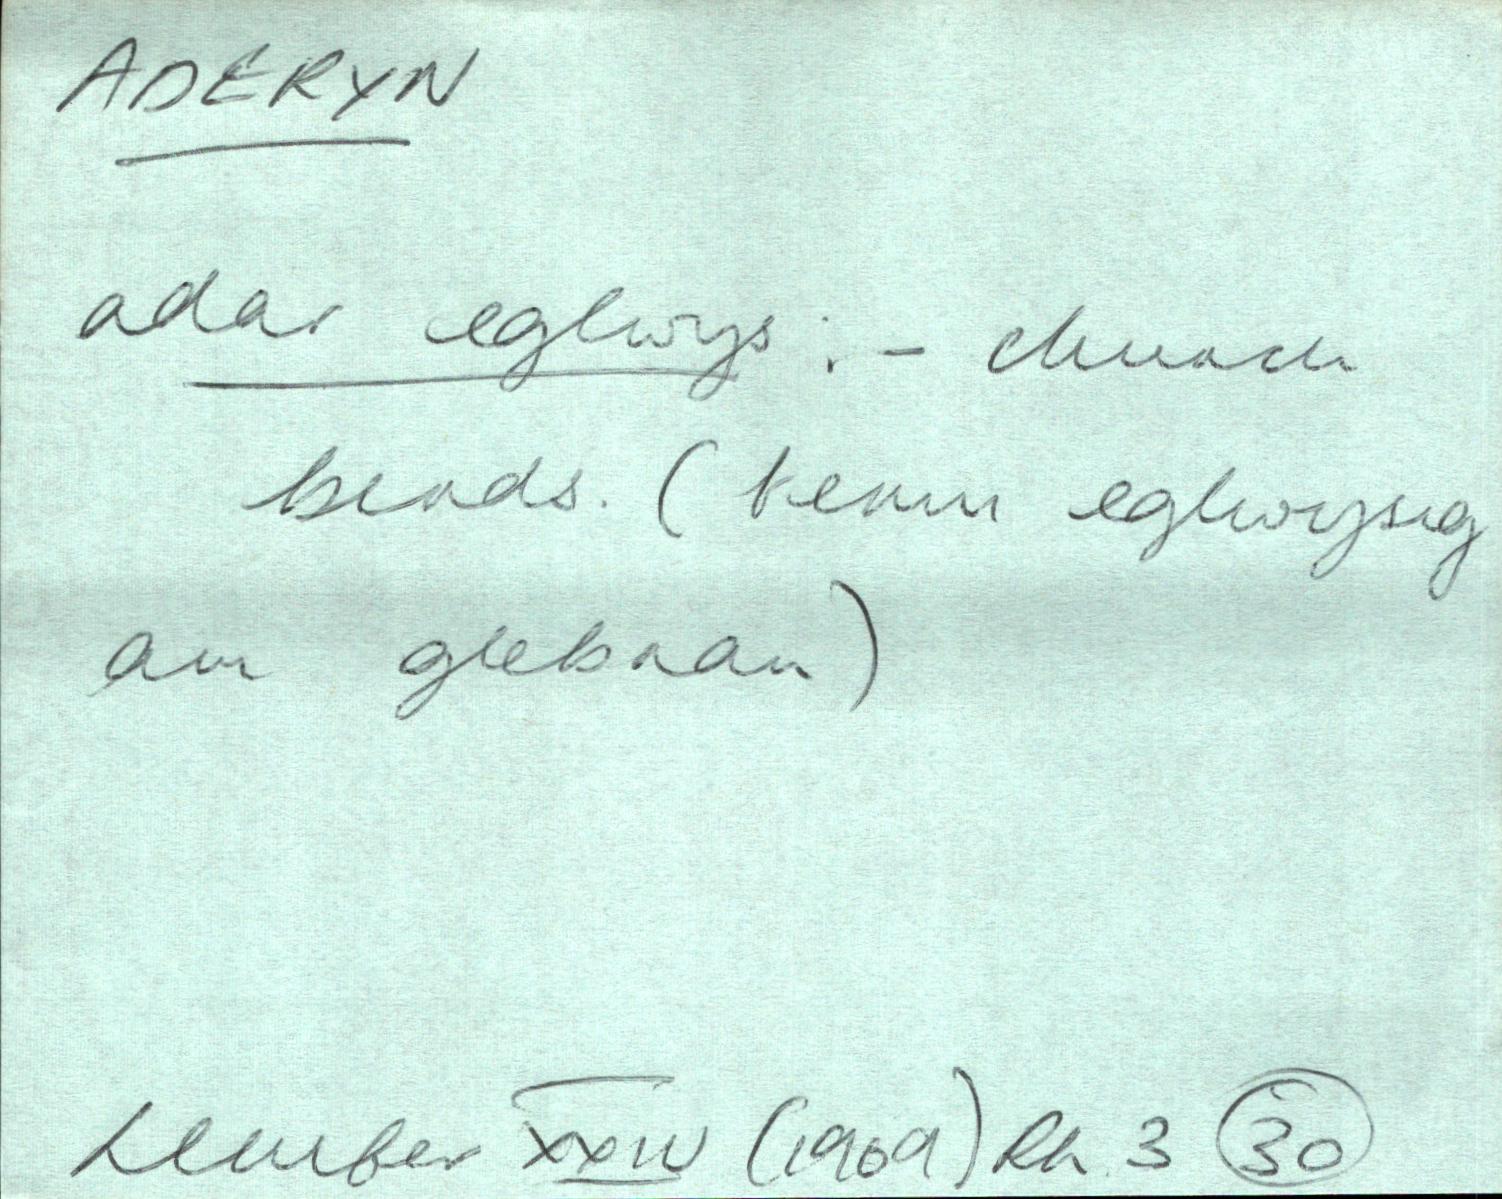 ADERYN
adar eglwys :- church
birds. (term eglwysig
am glebran)
Lleufer XXIV (1969) Rh. 3 30